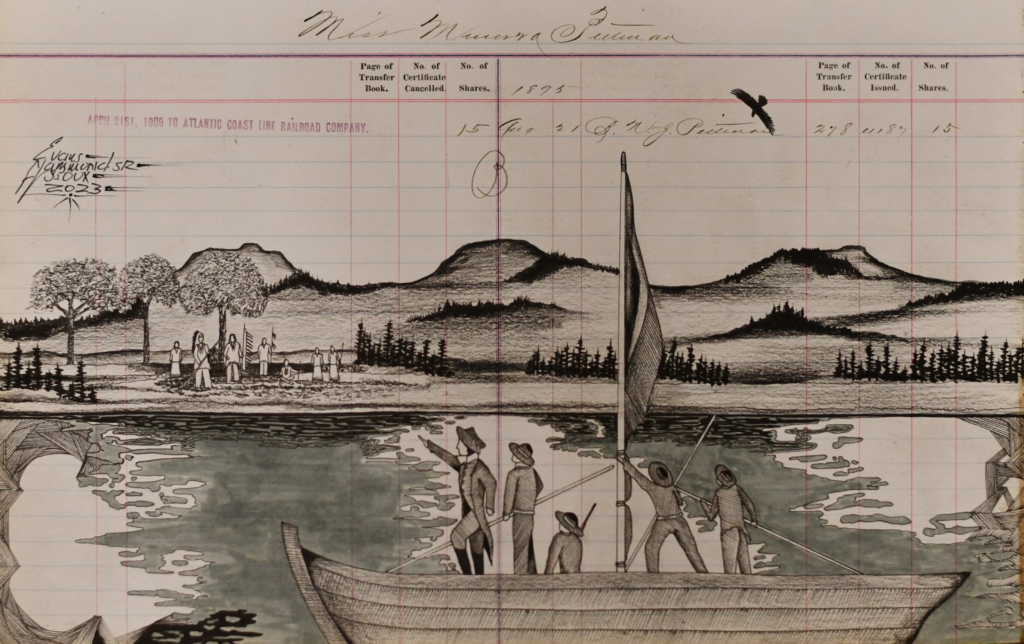 Miss Minerva Pittman
Page of Transfer Book.
No. of Certificate Cancelled.
No. of Shares.
1895
Page of Transfer Book.
No. of Certificate Issued.
No. of Shares.
APRIL 21ST, 1900 TO ATLANTIC COAST LINE RAILROAD COMPANY.
15 Aug 21 By N J Pittman 278 1187 15
B
Evans
Hammond SR
SIOUX
2023